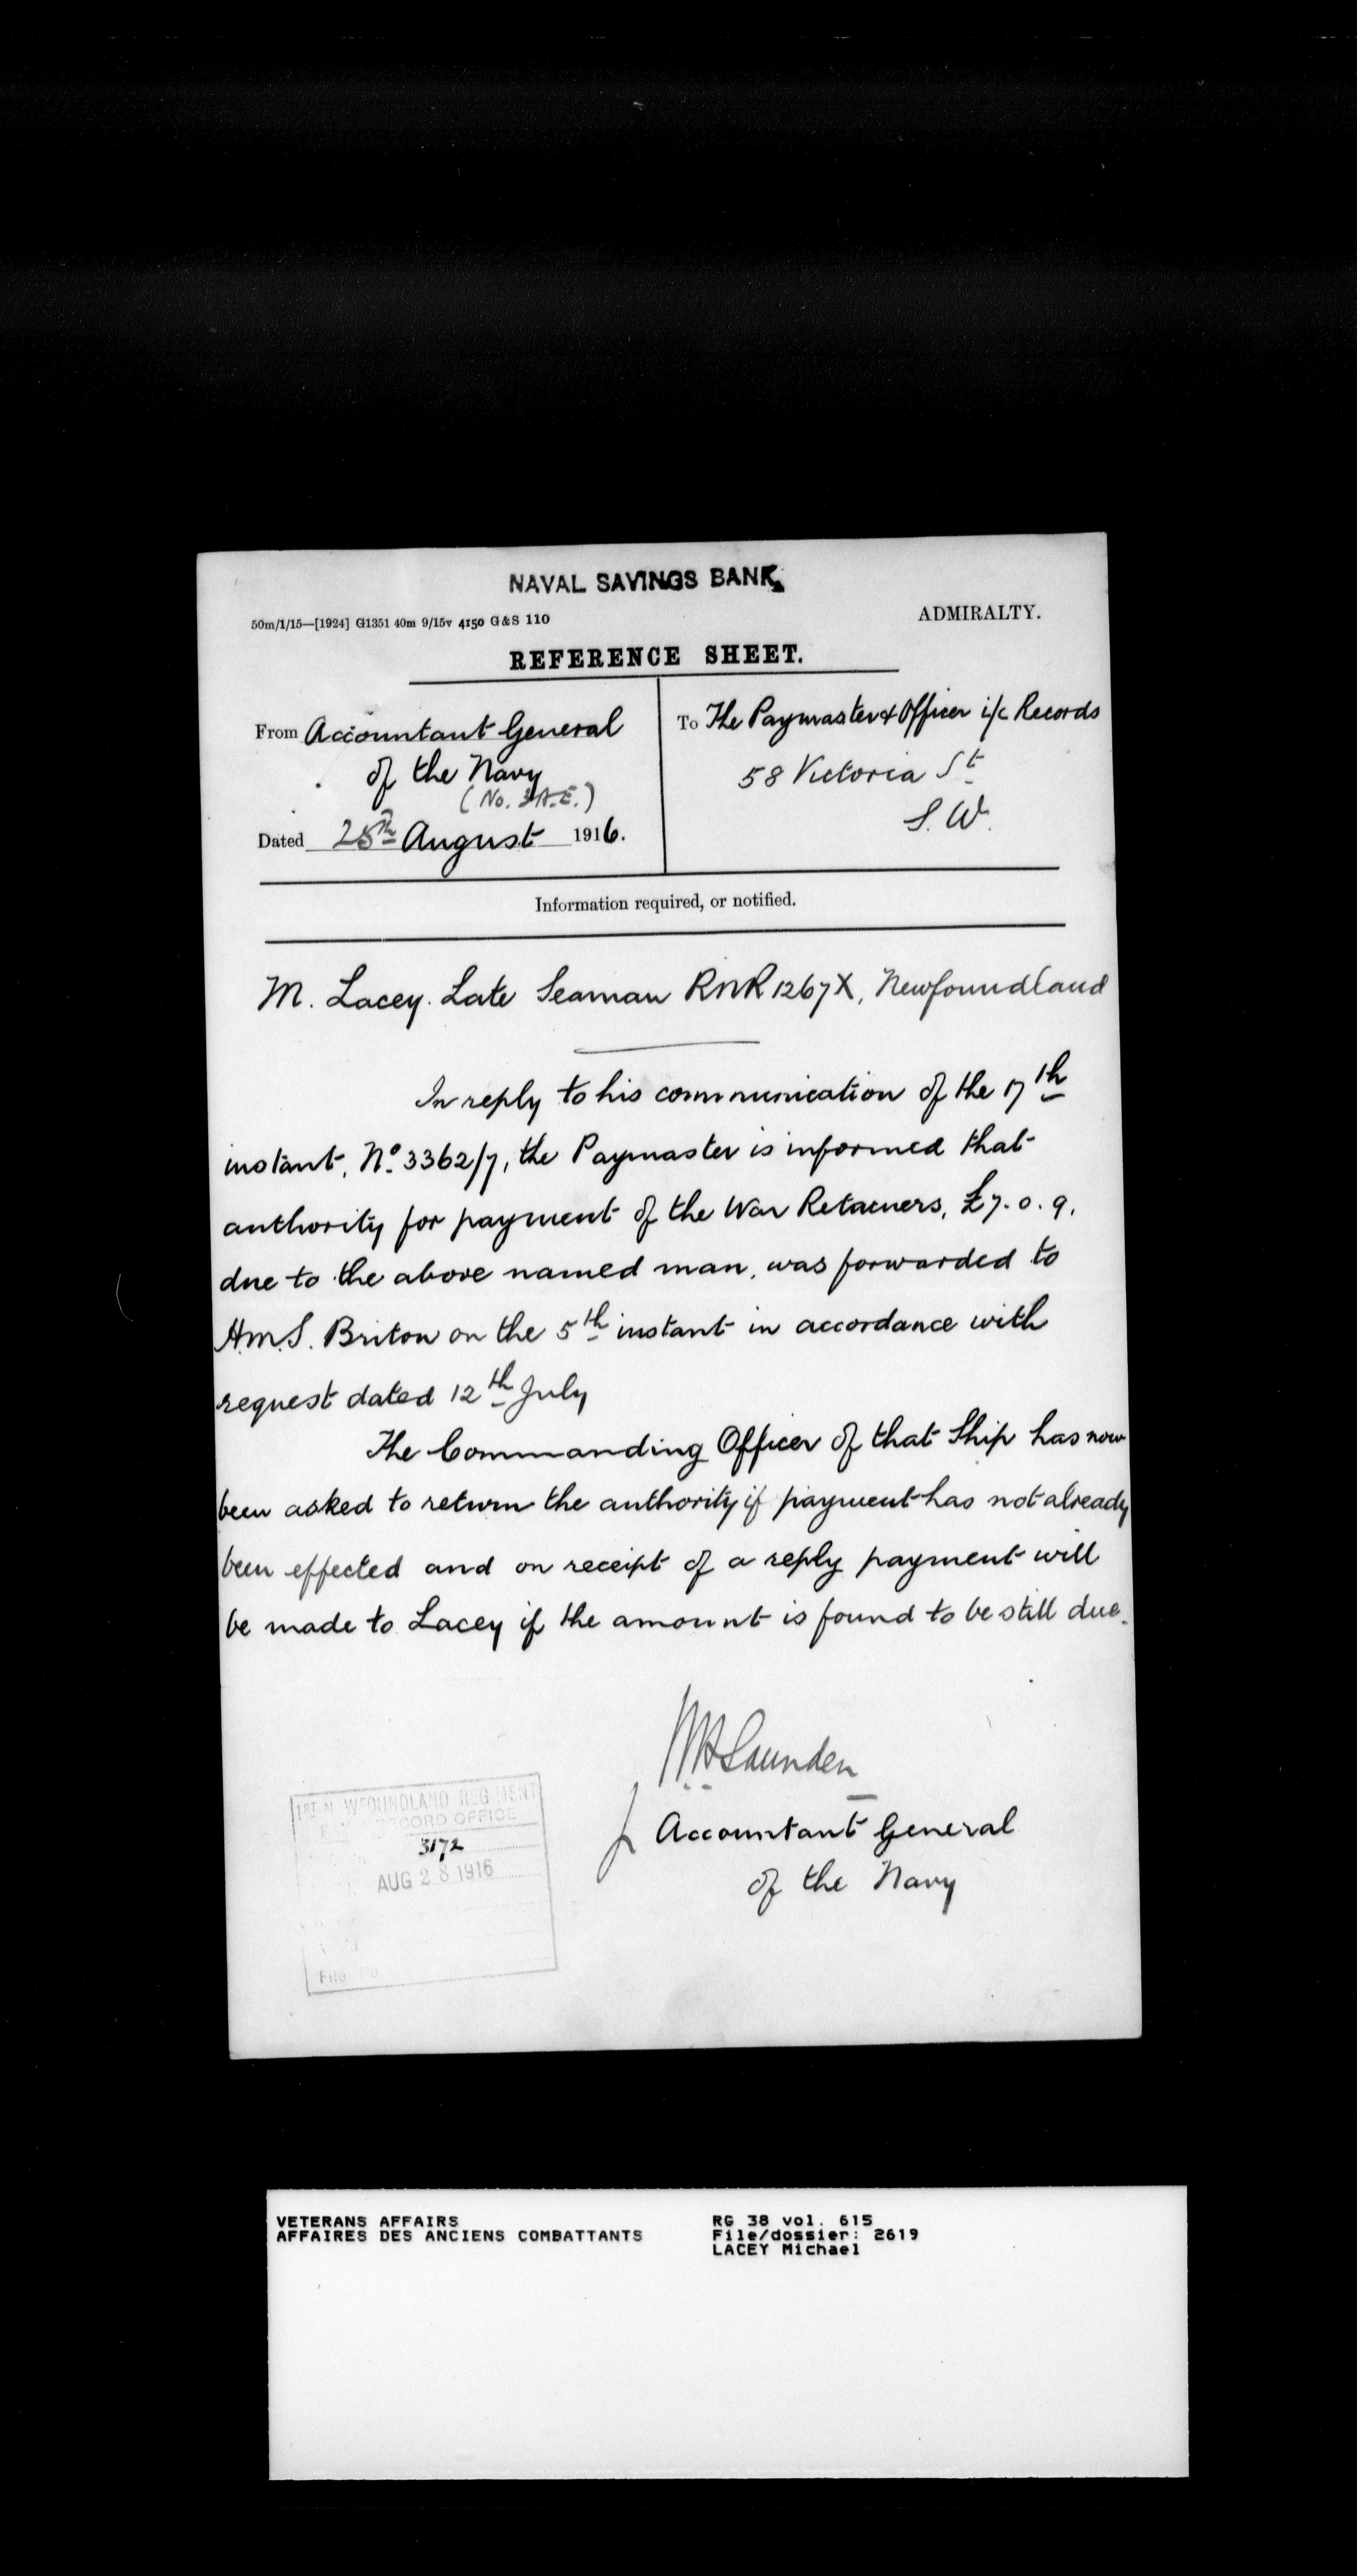 NAVAL SAVINGS BANK
50m/1/15—[1924] G1351 40m 9/15v 4150 G&S 110
ADMIRALTY.
REFERENCE SHEET.
From Accountant General
of the Navy
(No. 3 A.E.)
Dated 25th August 1916.
To The Paymaster & Officer i/c Records
58 Victoria St
S.W.
Information required, or notified.
M. Lacey. Late Seaman RNR 1267X, Newfoundland
In reply to his communication of the 17th
instant, No. 3362/7, the Paymaster is informed that
authority for payment of the War Retainers, £7. 0. 9.
due to the above named man, was forwarded to
H.M.S. Briton on the 5th instant in accordance with
request dated 12th July
The Commanding Officer of that Ship has now
been asked to return the authority if payment has not already
been effected and on receipt of a reply payment will
be made to Lacey if the amount is found to be still due.
WH Saunders
f Accountant General
of the Navy
1ST NEWFOUNDLAND REGIMENT
RECORD OFFICE
3172
AUG 28 1916
File No
VETERANS AFFAIRS
AFFAIRES DES ANCIENS COMBATTANTS
RG 38 vol. 615
File/dossier: 2619
LACEY Michael